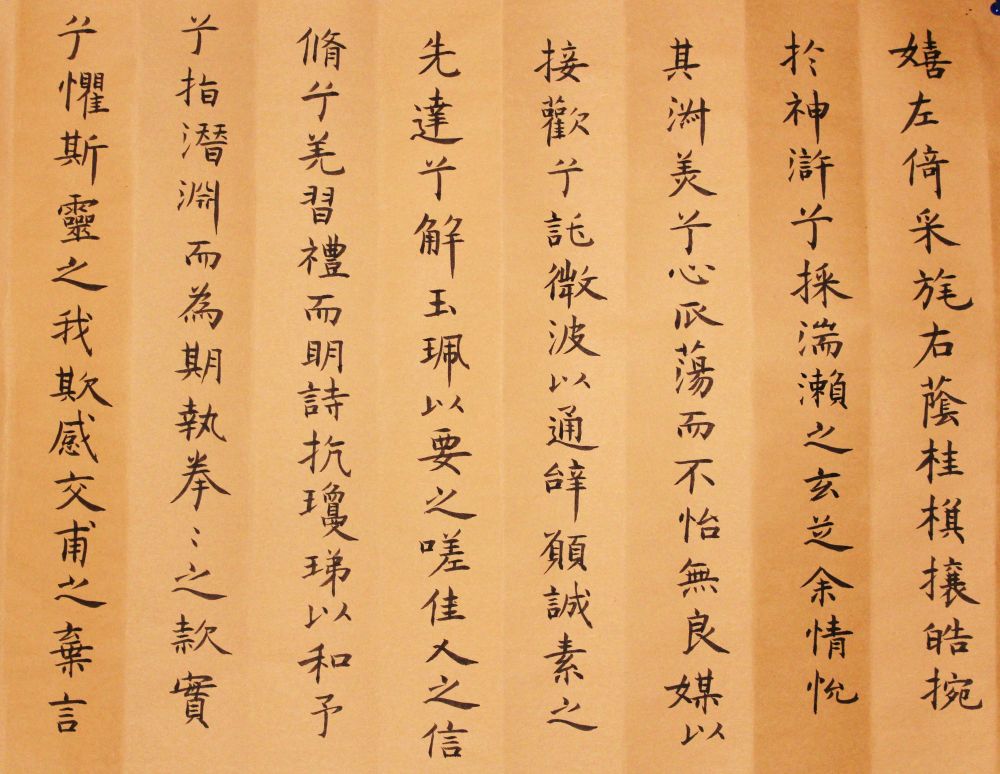 嬉左倚采旄右蔭桂棋攘皓捥
於神滸兮採湍瀨之玄芝余情悅
其淑美兮心𠂢蕩而不怡無良媒以
接歡兮託微波以通辝願誠素之
先達兮解玉珮以要之嗟佳人之信
脩兮羌習禮而明詩抗瓊珶以和予
兮指潛淵而為期執拳〻之款實
兮懼斯靈之我欺感交甫之棄言